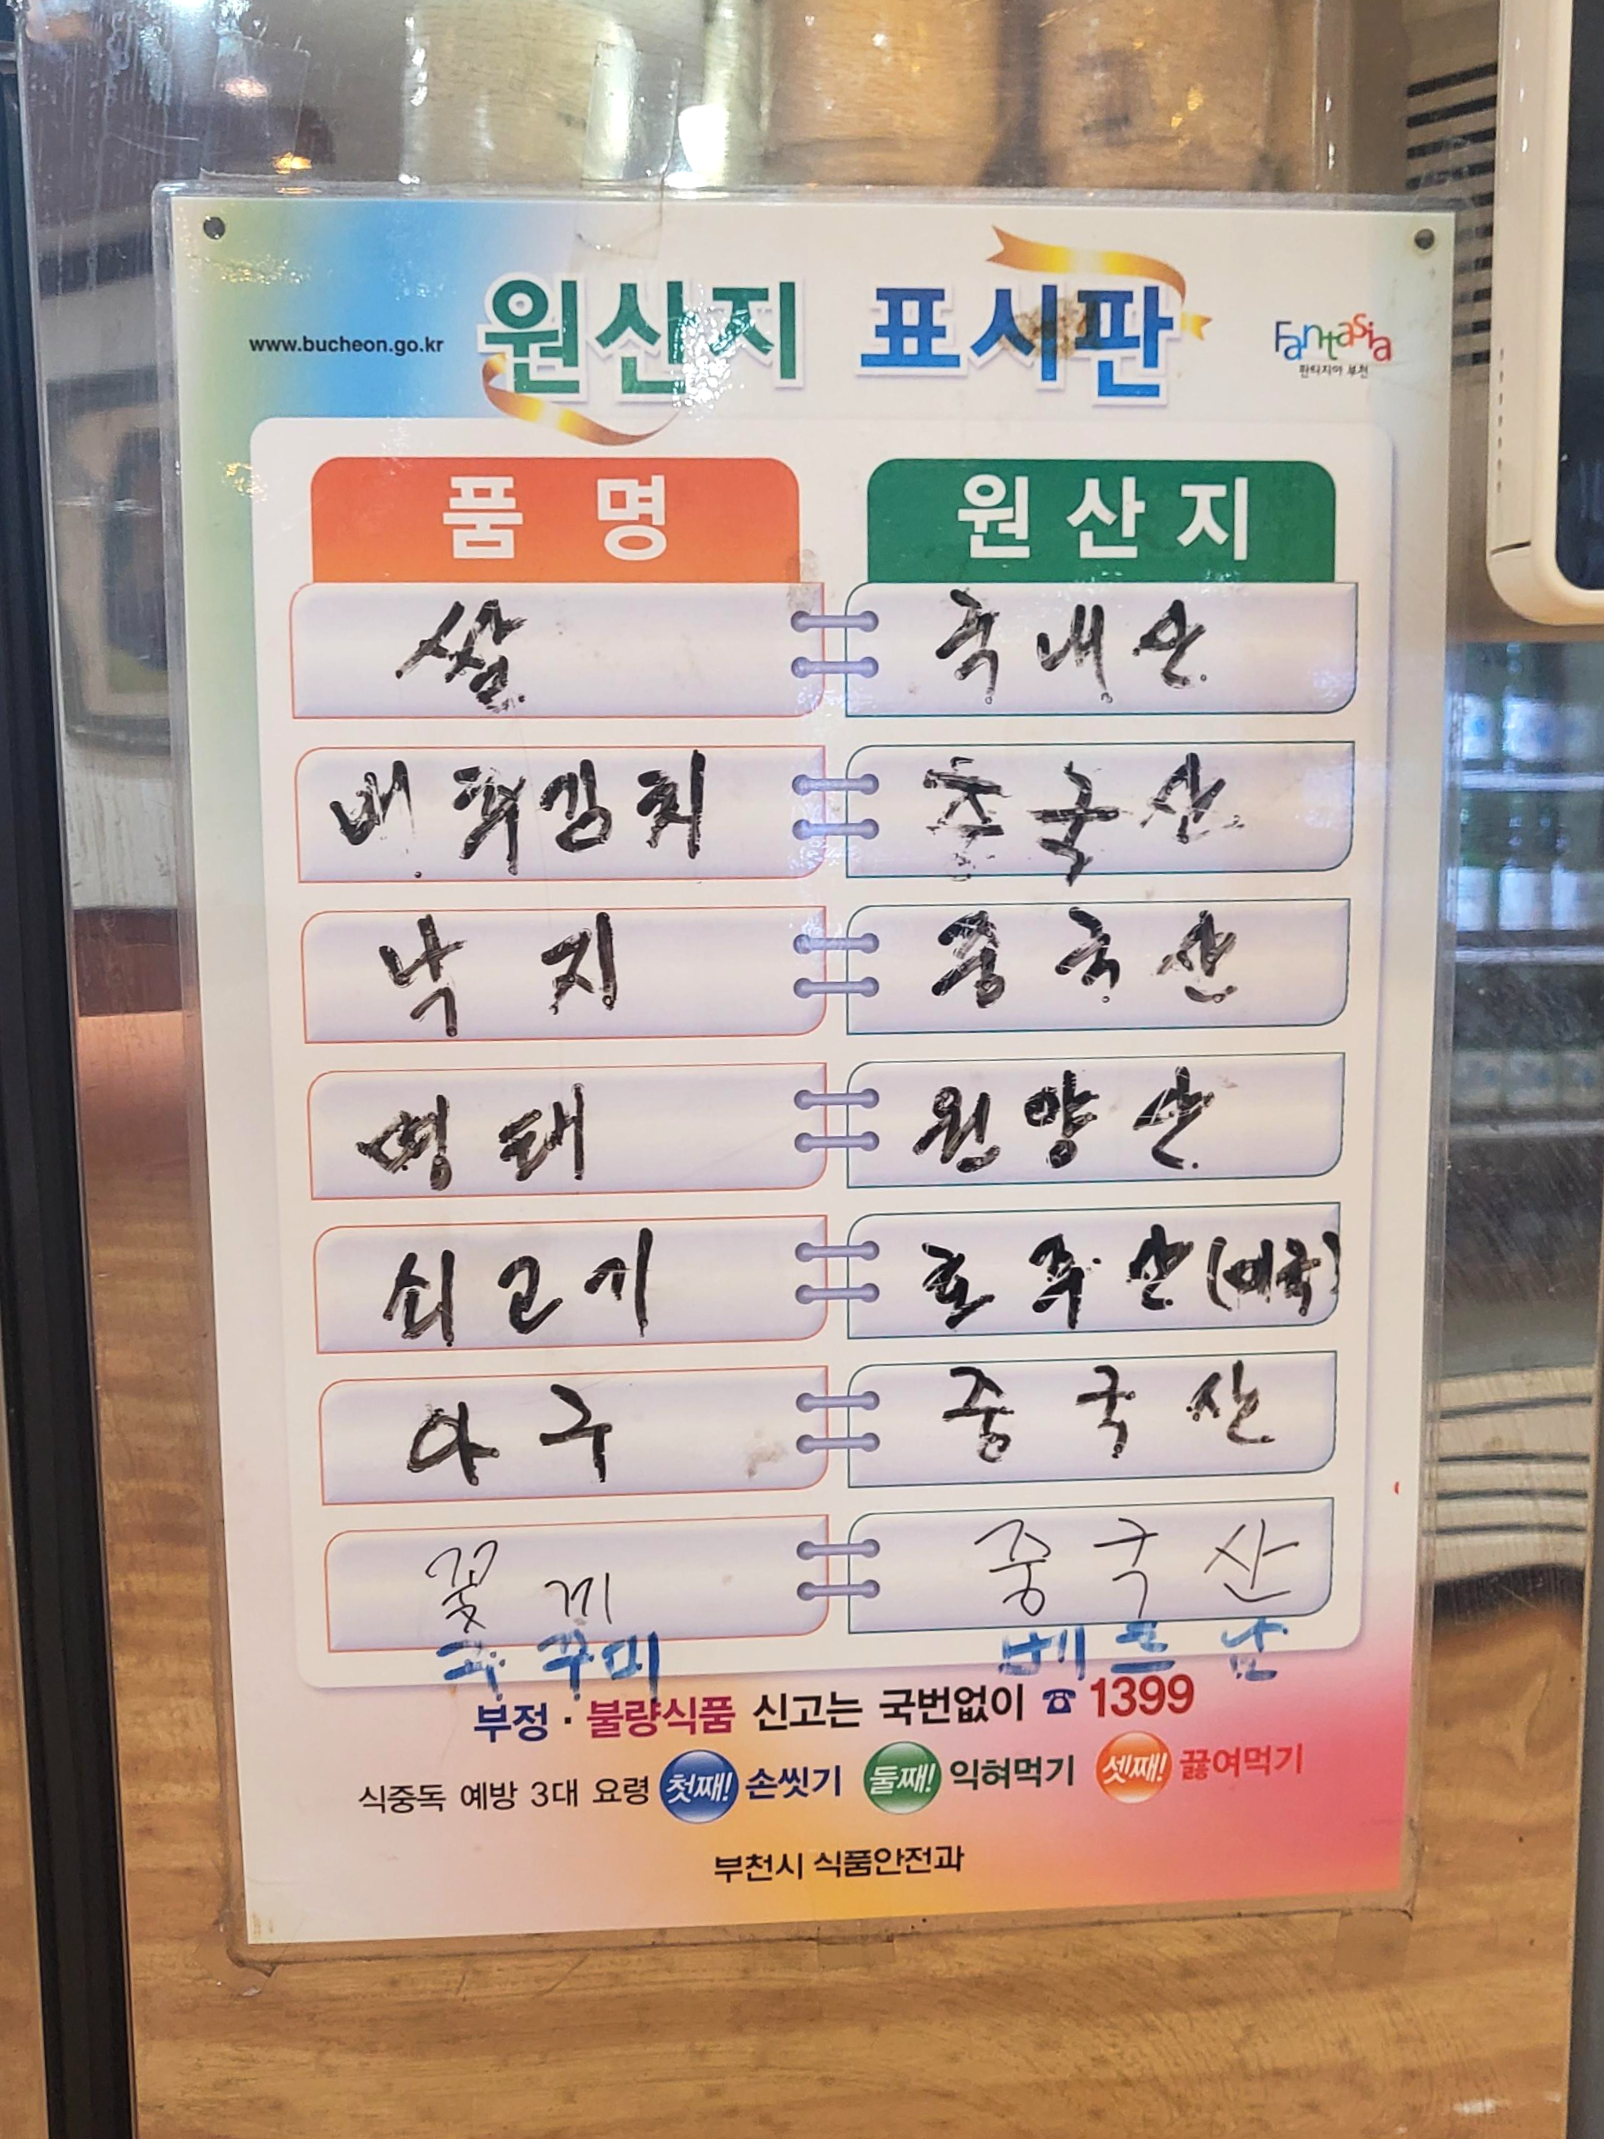 www.bucheon.go.kr 원산지 표시판 Fantasia
판타지아 부천
품명 원산지
쌀 국내산
배추김치 중국산
낙지 중국산
명태 원양산
쇠고기 호주산(미국)
아구 중국산
꽃게 중국산
쭈꾸미 베트남
부정·불량식품 신고는 국번없이 ☎1399
식중독 예방 3대 요령 첫째! 손씻기 둘째! 익혀먹기 셋째! 끓여먹기
부천시 식품안전과